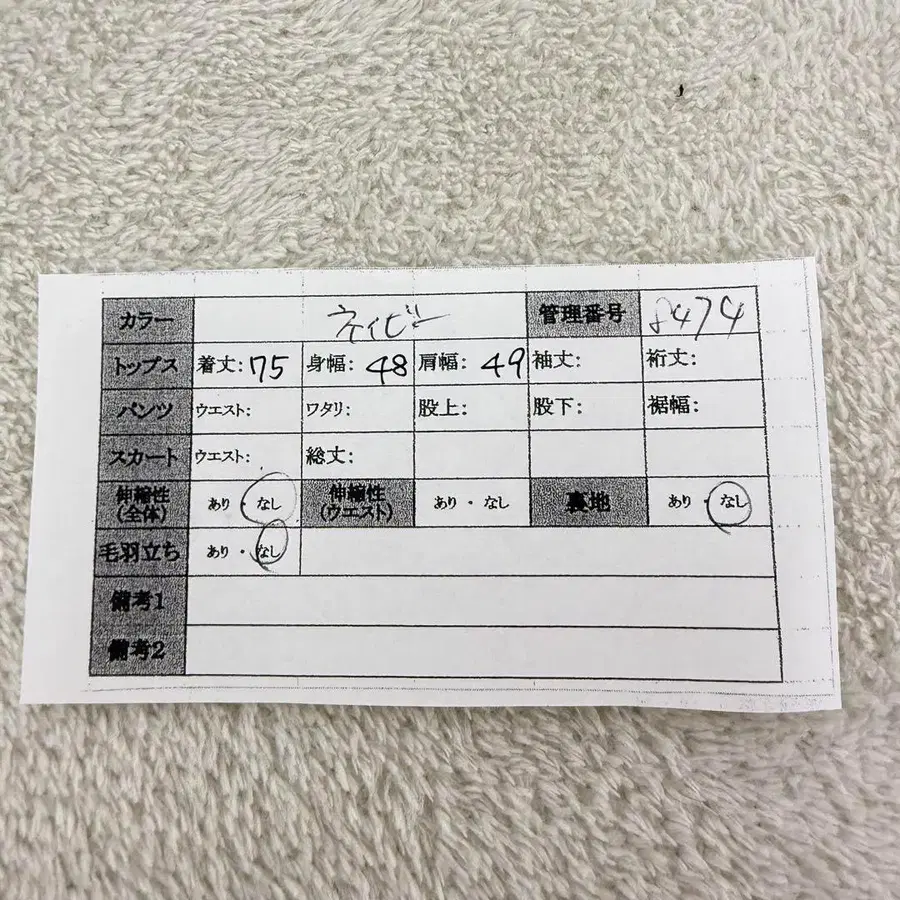 カラー ネイビー 管理番号 8474
トップス 着丈: 75 身幅: 48 肩幅: 49 袖丈: 裄丈:
パンツ ウエスト: ワタリ: 股上: 股下: 裾幅:
スカート ウエスト: 総丈:
伸縮性(全体) あり・なし 伸縮性(ウエスト) あり・なし 裏地 あり・なし
毛羽立ち あり・なし
備考1
備考2